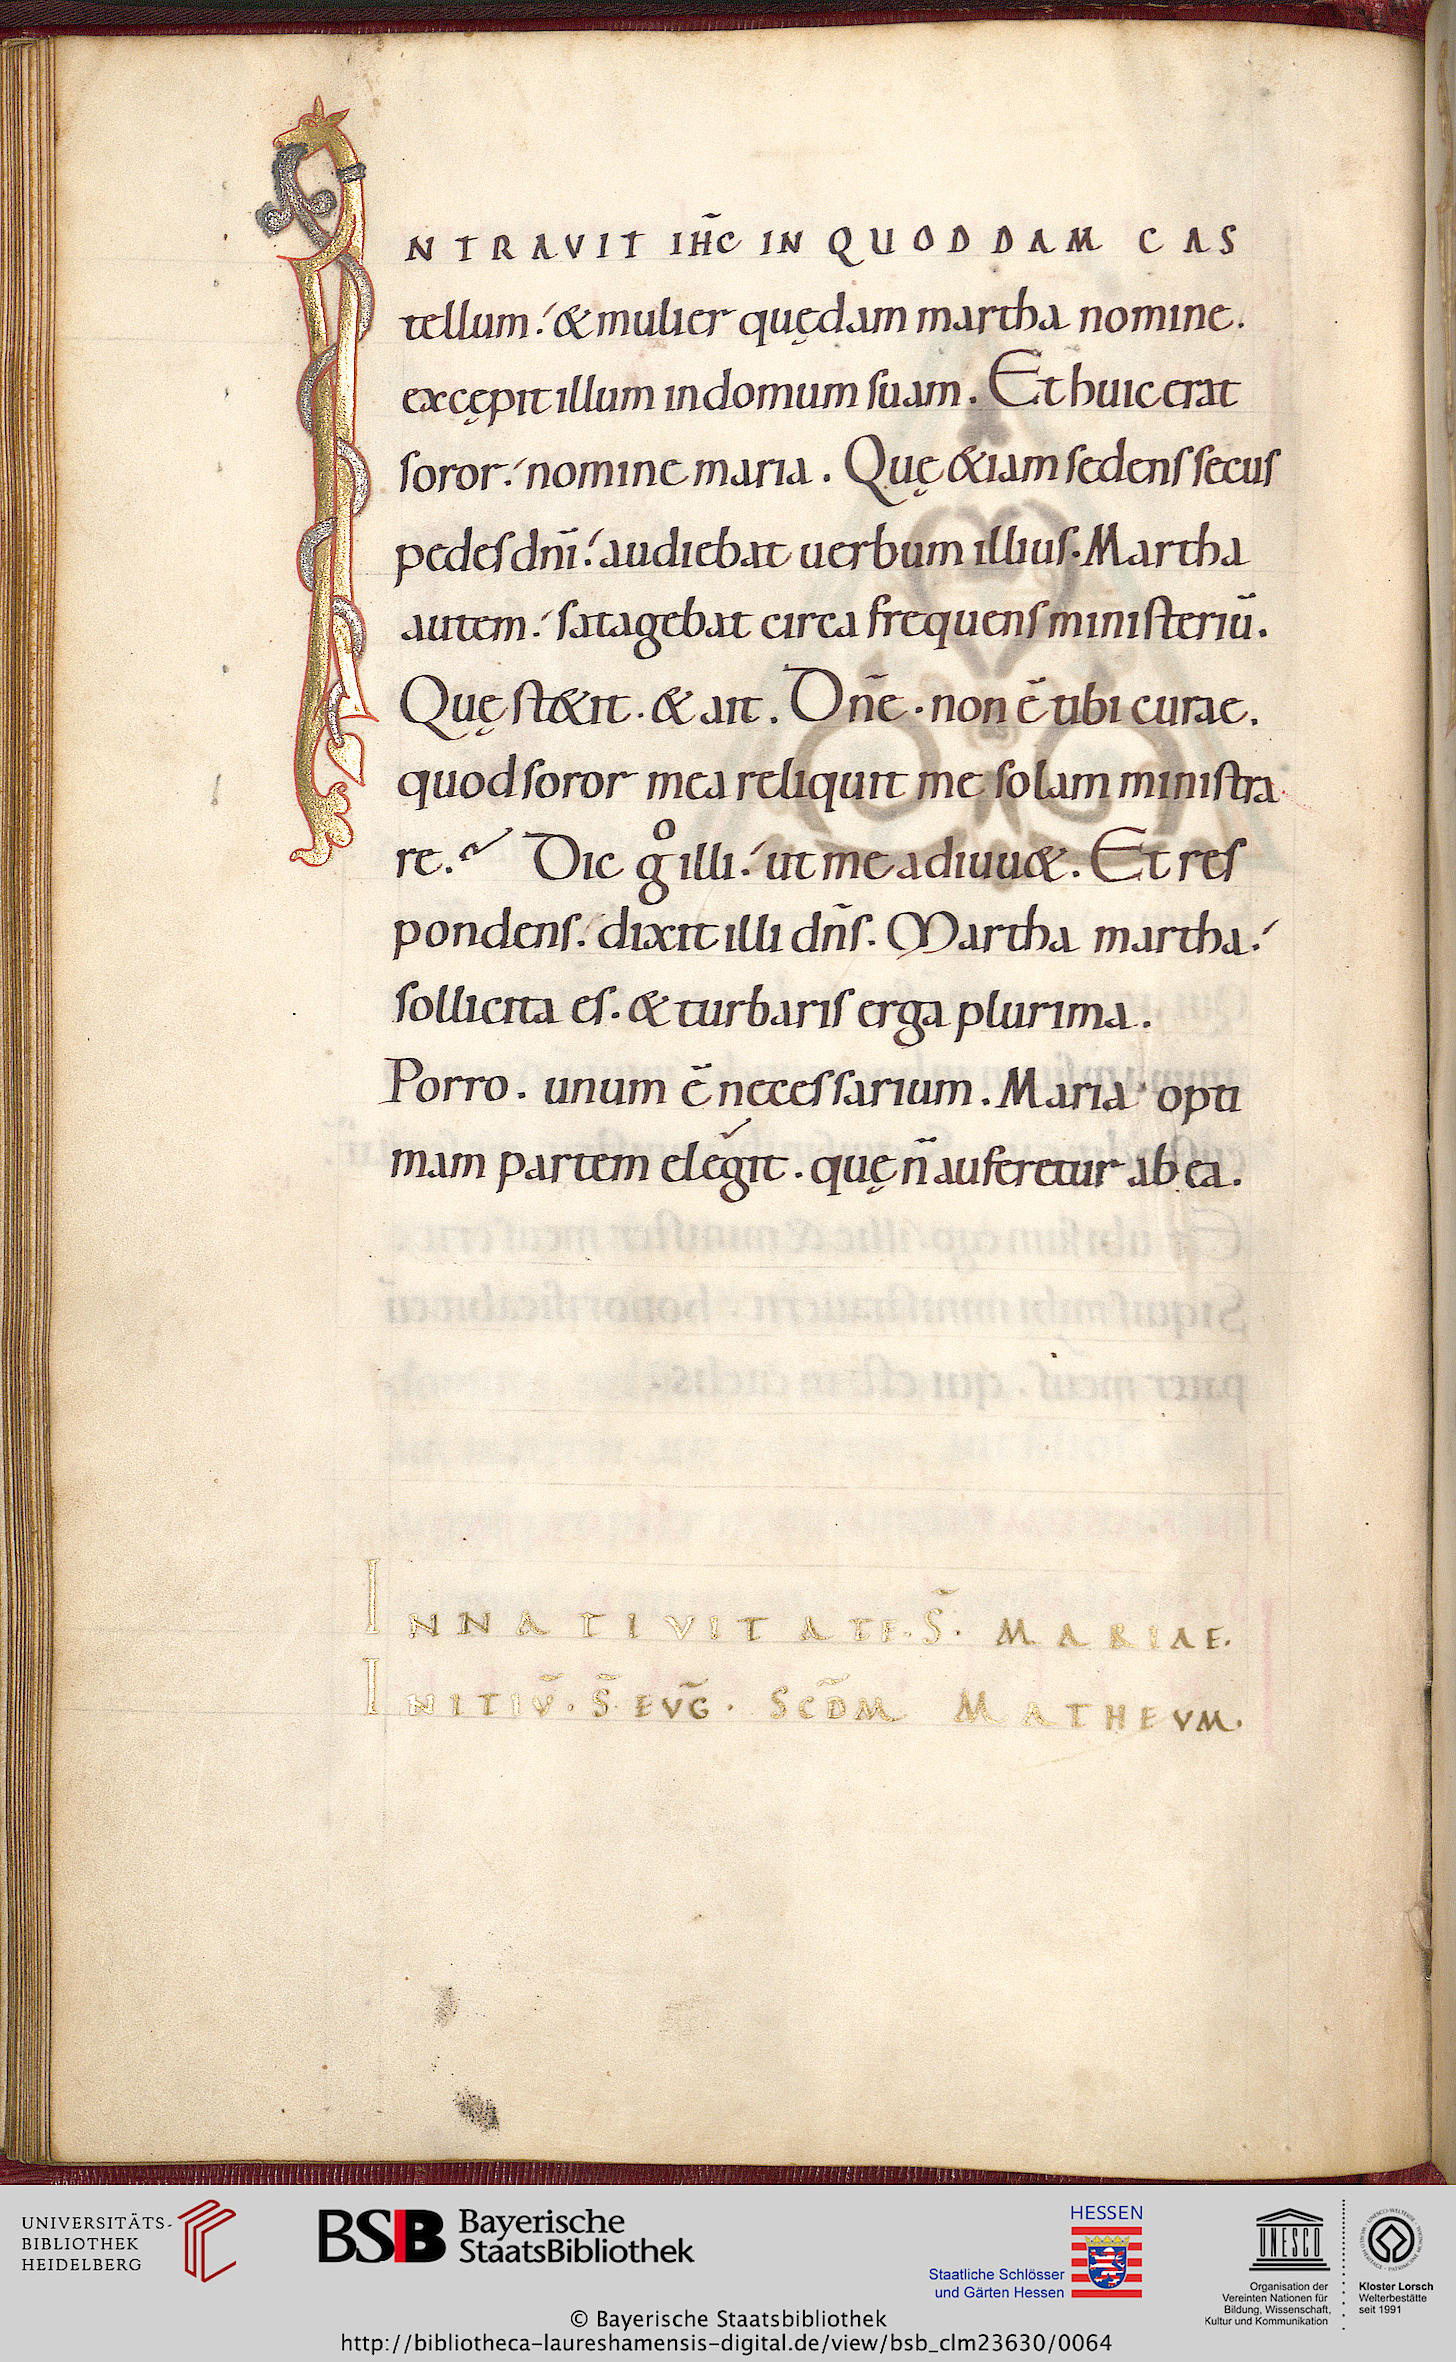 INTRAVIT IHC̄ IN QUODDAM CAS
tellum. & mulier quędam martha nomine.
excępit illum in domum suam. Et huic erat
soror. nomine maria. Quę &iam sedens secus
pedes dnī. audiebat uerbum illius. Martha
autem. satagebat circa frequens ministeriū.
Quę st&it. & ait. Dnē. non ē tibi curae.
quod soror mea reliquit me solam ministra
re. Dic gͦ illi. ut me adiuu&. Et res
pondens. dixit illi dn̄s. Martha martha.
sollicita es. & turbaris erga plurima.
Porro. unum ē necessarium. Maria opti
mam partem elegit. quę n̄ auferetur ab ea.
IN NATIVITATE. S̄. MARIAE.
INITIV̄. S̄. EVḠ. SCD̄M MATHEVM.
UNIVERSITÄTS-
BIBLIOTHEK
HEIDELBERG
BSB Bayerische
StaatsBibliothek
HESSEN
Staatliche Schlösser
und Gärten Hessen
UNESCO
Organisation der
Vereinten Nationen für
Bildung, Wissenschaft,
Kultur und Kommunikation
Kloster Lorsch
Welterbestätte
seit 1991
© Bayerische Staatsbibliothek
http://bibliotheca-laureshamensis-digital.de/view/bsb_clm23630/0064